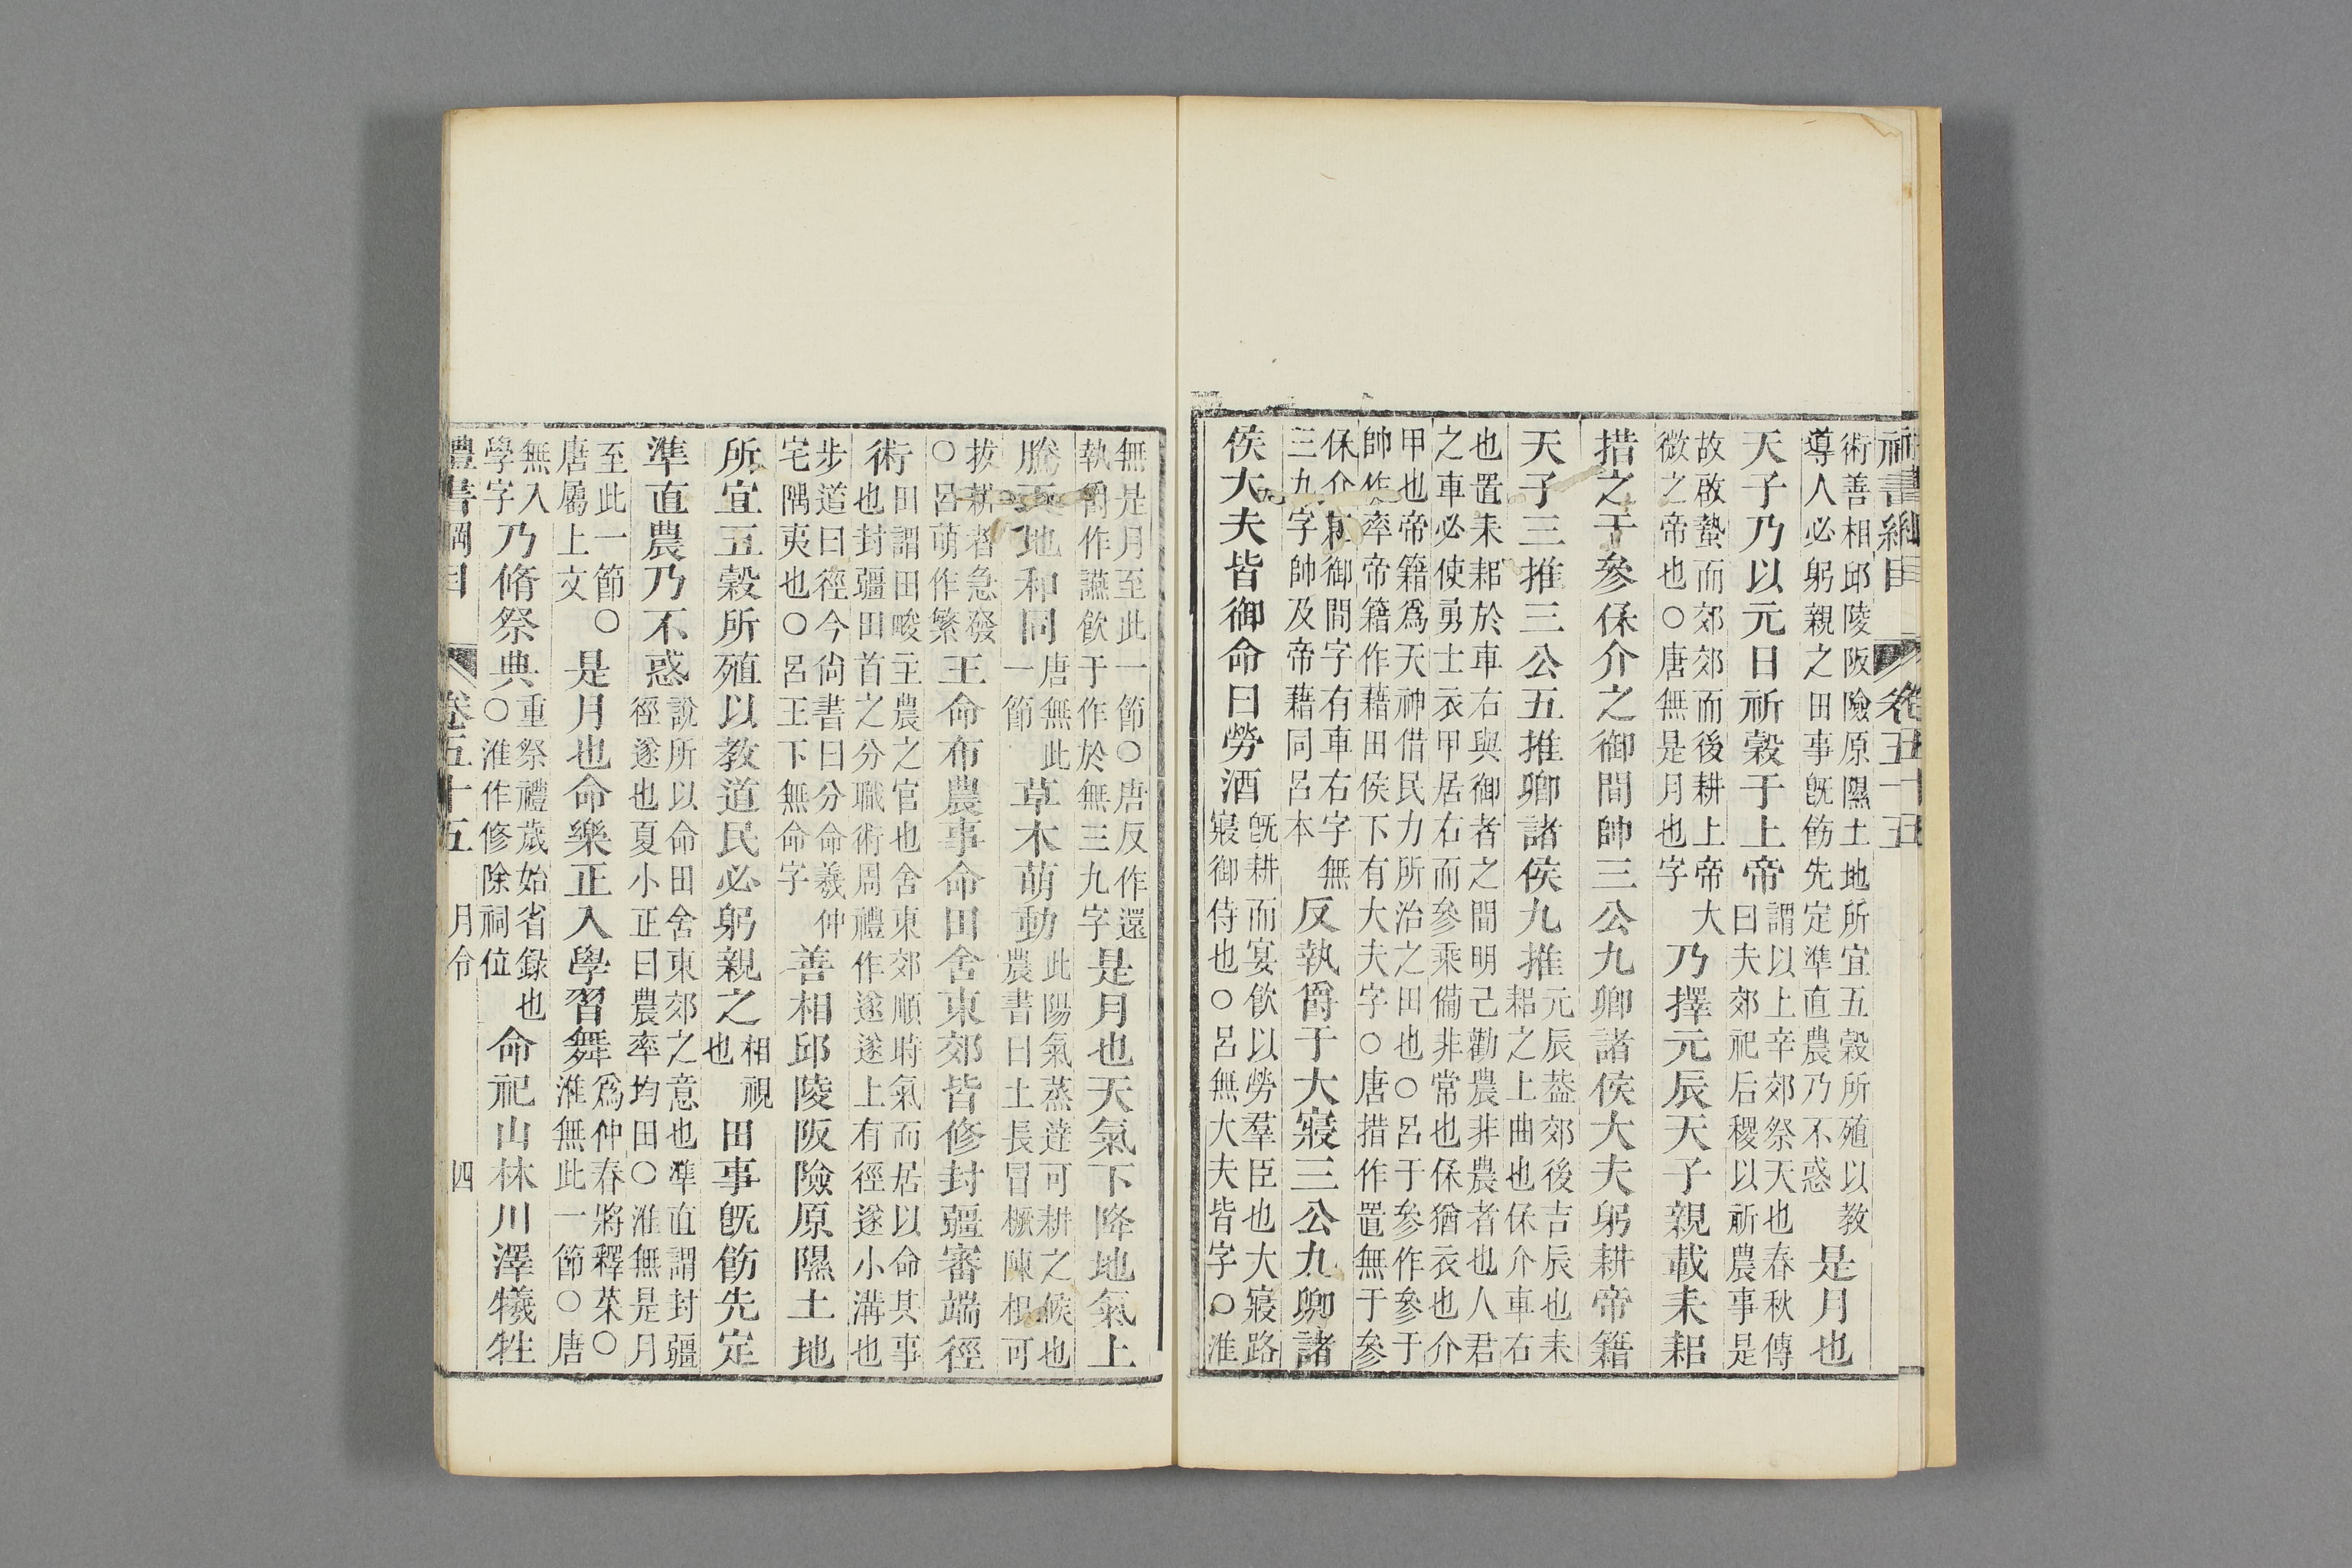 禮書綱目 卷五十五
術善相邱陵阪險原隰土地所宜五穀所殖以教
導人必躬親之田事旣飭先定準直農乃不惑
是月也
天子乃以元日祈穀于上帝
謂以上辛郊祭天也春秋傳
曰夫郊祀后稷以祈農事是
故啟蟄而郊郊而後耕上帝大
微之帝也○唐無是月也字
乃擇元辰天子親載耒耜
措之于參保介之御間帥三公九卿諸侯大夫躬耕帝籍
天子三推三公五推卿諸侯九推
元辰葢郊後吉辰也耒
耜之上曲也保介車右
也置耒耜於車右與御者之間明己勸農非農者也人君
之車必使勇士衣甲居右而參乘備非常也保猶衣也介
甲也帝籍爲天神借民力所治之田也○呂于參作參于
帥作率帝籍作藉田侯下有大夫字○唐措作置無于參
保介御間字有車右字無
三九字帥及帝藉同呂本
反執爵于大寢三公九卿諸
侯大夫皆御命曰勞酒
旣耕而宴飲以勞羣臣也大寢路
寢御侍也○呂無大夫皆字○淮
無是月至此一節○唐反作還
執爵作讌飲于作於無三九字
是月也天氣下降地氣上
騰天地和同
唐無此
一節
草木萌動
此陽氣蒸達可耕之候也
農書曰土長冒橛陳根可
拔耕者急發
○呂萌作繁
王命布農事命田舍東郊皆修封疆審端徑
術
田謂田畯主農之官也舍東郊順時氣而居以命其事
也封疆田首之分職術周禮作遂遂上有徑遂小溝也
步道曰徑今尙書曰分命羲仲
宅隅夷也○呂王下無命字
善相邱陵阪險原隰土地
所宜五穀所殖以教道民必躬親之
相視
也
田事旣飭先定
準直農乃不惑
說所以命田舍東郊之意也準直謂封疆
徑遂也夏小正曰農率均田○淮無是月
至此一節○
唐屬上文
是月也命樂正入學習舞
爲仲春將釋菜○
淮無此一節○唐
無入
學字
乃脩祭典
重祭禮歲始省錄也
○淮作修除祠位
命祀山林川澤犧牲
禮書綱目 卷五十五 月令 四